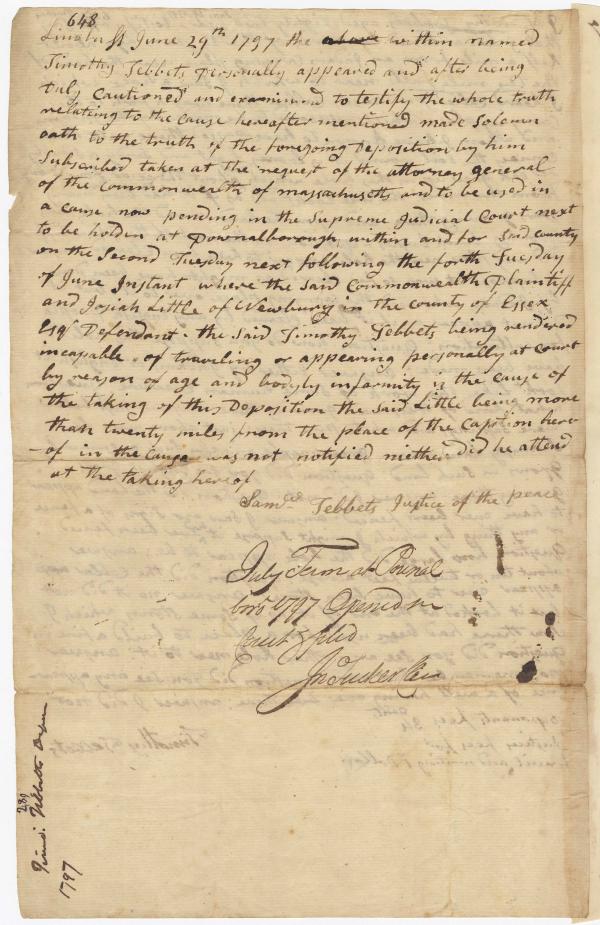 648
Lincoln ss June 29th 1797 the above within named
Timothy Tebbets personally appeared and after being
duly cautioned and examined to testify the whole truth
relating to the cause hereafter mentioned made Solemn
oath to the truth of the foregoing Deposition by him
Subscribed taken at the request of the attorney general
of the Commonwealth of massachusetts and to be used in
a cause now pending in the Supreme Judicial Court next
to be holden at Pownalborough within and for Said County
on the Second Tuesday next following the forth Tuesday
of June Instant where the said Commonwealth Plaintiff
and Josiah Little of Newbury in the county of Essex
Esqr Defendant. the said Timothy Tebbets being rendered
incapable of traveling or appearing personally at Court
by reason of age and bodyly infirmity is the cause of
the taking of this Deposition the said Little being more
than twenty miles from the place of the Caption here
of in the Cause was not notified niether did he attend
at the taking hereof
Samll Tebbets Justice of the peace
July Term at Pownal
boro 1797 Opened in
Court & filed
Jn Tucker Cler
Timo. Tebbetts Depn
289
1797